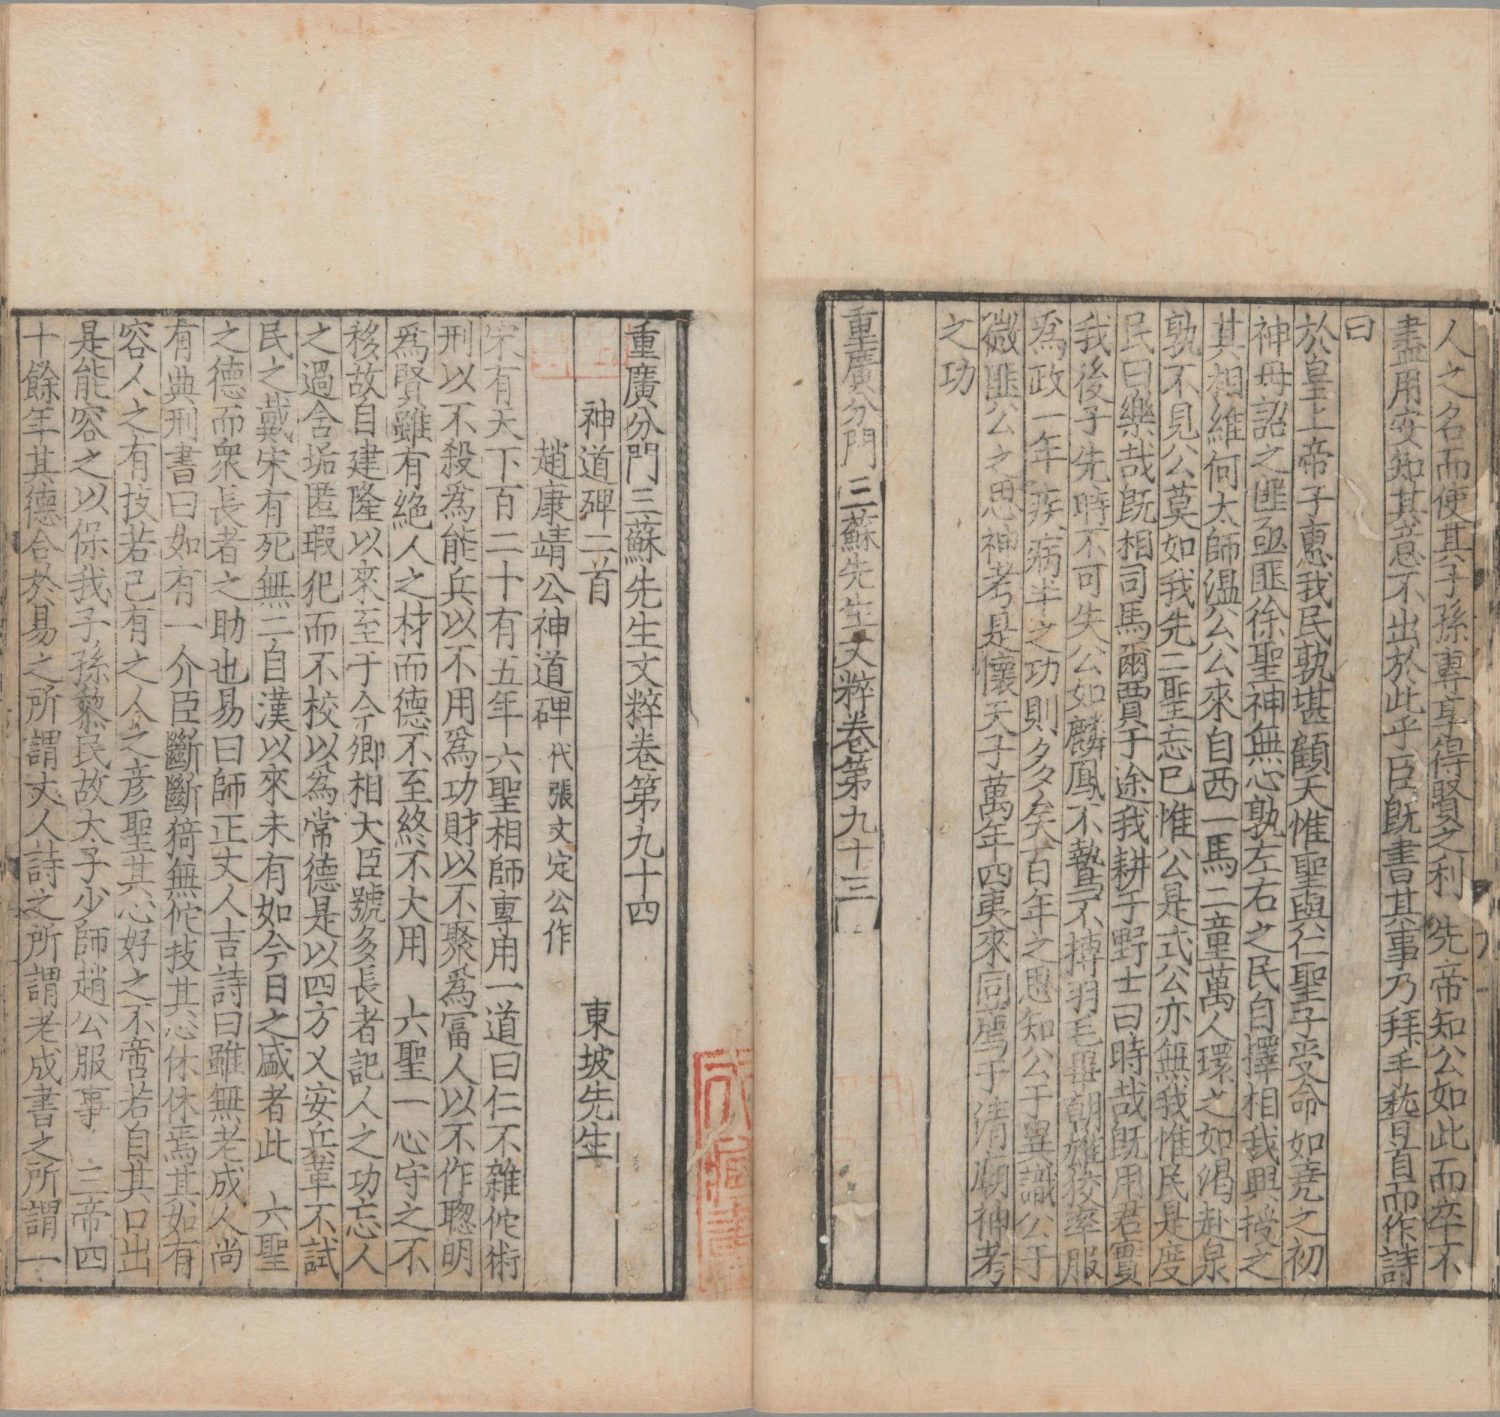 人之名而使其子孫專享得賢之利　先帝知公如此而卒不
盡用安知其意不出於此乎臣既書其事乃拜手稽首而作詩
曰
於皇上帝子惠我民孰堪顧天惟聖與仁聖子受命如堯之初
神母詔之匪亟匪徐聖神無心孰左右之民自擇相我興授之
其相維何太師溫公公來自西一馬二童萬人環之如渴赴泉
孰不見公莫如我先二聖忘己惟公是式公亦無我惟民是度
民曰樂哉既相司馬爾賈于途我耕于野士曰時哉既用君實
我後子先時不可失公如麟鳳不鷙不搏羽毛畢朝雄狡率服
爲政一年疾病半之功則多矣百年之思知公于異識公于
微匪公之思神考是懷天子萬年四夷來同薦于清廟神考
之功
重廣分門三蘇先生文粹卷第九十三
重廣分門三蘇先生文粹卷第九十四
神道碑二首　東坡先生
趙康靖公神道碑 代張文定公作
宋有天下百二十有五年六聖相師專用一道曰仁不雜佗術
刑以不殺爲能兵以不用爲功財以不聚爲富人以不作聰明
爲賢雖有絕人之材而德不至終不大用　六聖一心守之不
移故自建隆以來至于今卿相大臣號多長者記人之功忘人
之過含垢匿瑕犯而不校以爲常德是以四方乂安兵革不試
民之戴宋有死無二自漢以來未有如今日之盛者此　六聖
之德而衆長者之助也易曰師正丈人吉詩曰雖無老成人尚
有典刑書曰如有一介臣斷斷猗無佗技其心休休焉其如有
容人之有技若己有之人之彥聖其心好之不啻若自其口出
是能容之以保我子孫黎民故太子少師趙公服事　三帝四
十餘年其德合於易之所謂丈人詩之所謂老成書之所謂一